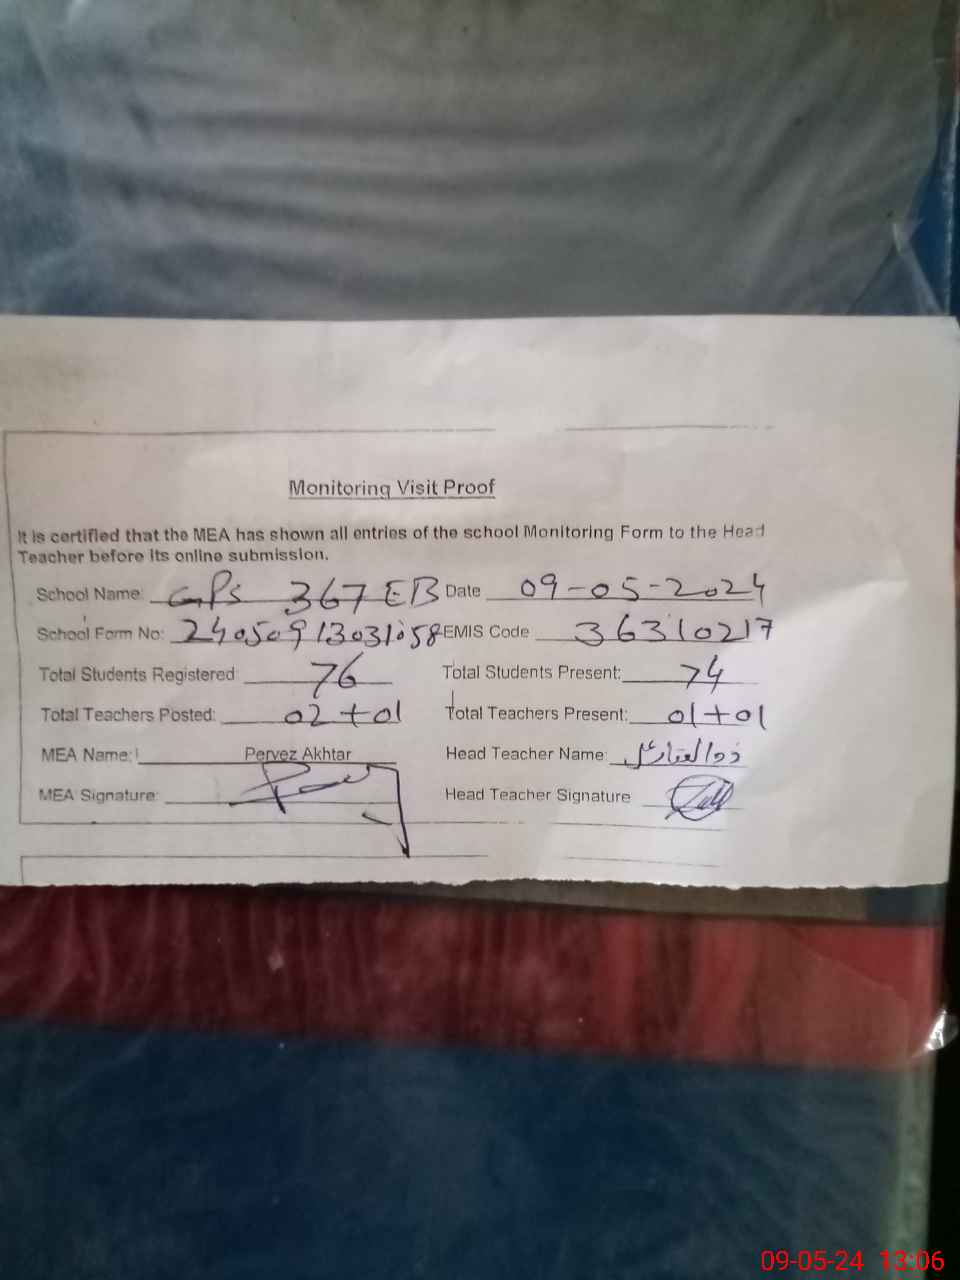 Monitoring Visit Proof
It is certified that the MEA has shown all entries of the school Monitoring Form to the Head
Teacher before its online submission.
School Name: GPS 367 EB Date 09-05-2024
School Form No: 24050913031058 EMIS Code 36310217
Total Students Registered 76 Total Students Present: 74
Total Teachers Posted: 02+01 Total Teachers Present: 01+01
MEA Name: Pervez Akhtar Head Teacher Name:
MEA Signature: Head Teacher Signature
09-05-24 13:06